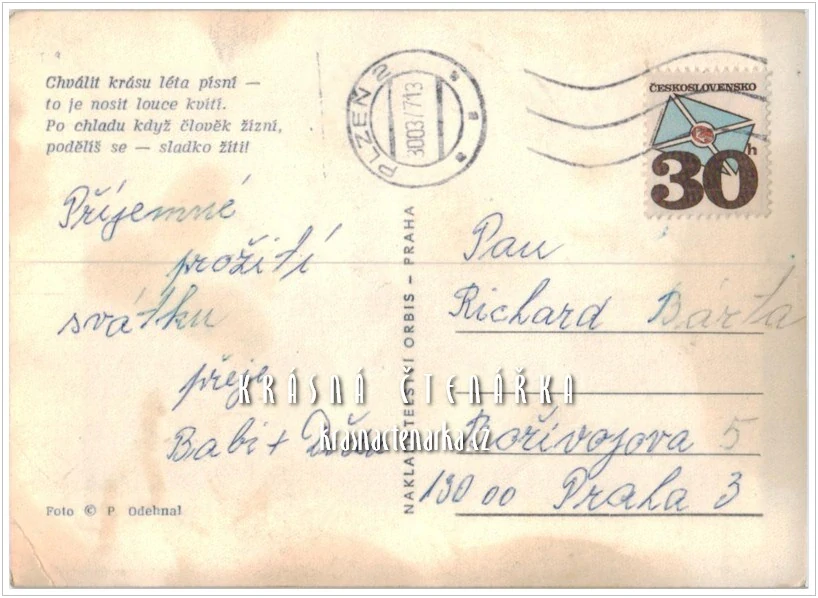 Chválit krásu léta písní —
to je nosit louce kvítí.
Po chladu když člověk žízní,
podělíš se — sladko žíti!
Příjemné
prožití
svátku
přeje
Babi +
Foto © P. Odehnal
NAKLADATELSTVÍ ORBIS – PRAHA
PLZEŇ 2
ČESKOSLOVENSKO
30h
Pan
Richard Bárta
Bořivojova 5
130 00 Praha 3
KRÁSNÁ ČTENÁŘKA
krasnactenarka.cz